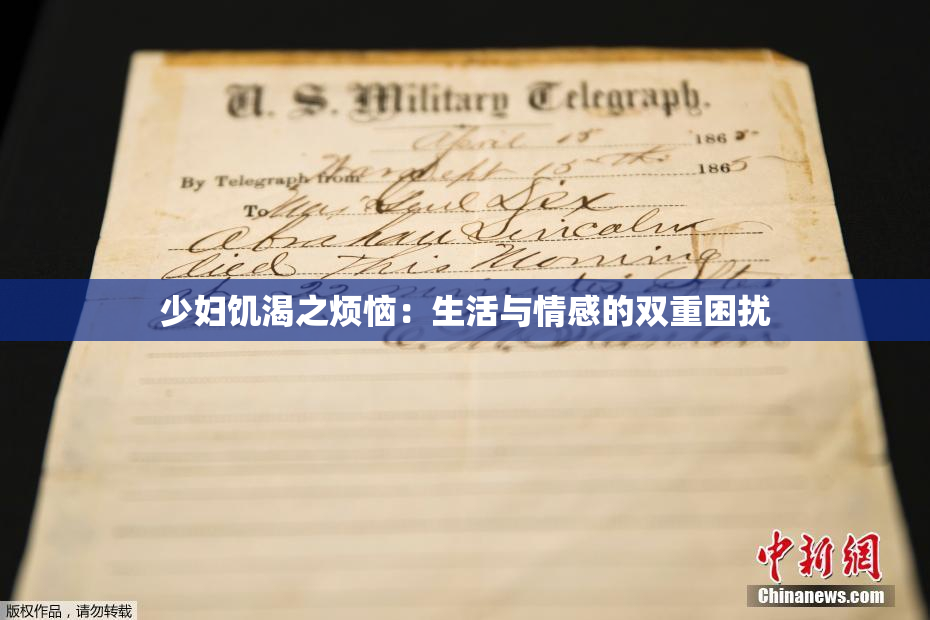 U. S. Military Telegraph.
April 15 1865
By Telegraph from War Dept 15th 1865
To Maj Genl Dix
Abraham Lincoln
died This Morning
at 22 minutes after
E. M. Stanton
少妇饥渴之烦恼：生活与情感的双重困扰
中新网
Chinanews.com
版权作品，请勿转载